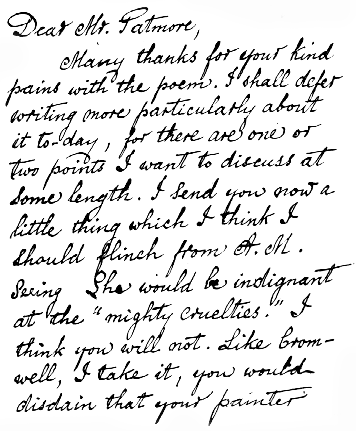 Dear Mr. Patmore,
Many thanks for your kind
pains with the poem. I shall defer
writing more particularly about
it to-day, for there are one or
two points I want to discuss at
some length. I send you now a
little thing which I think I
should flinch from A. M.
seeing She would be indignant
at the "mighty cruelties." I
think you will not. Like Crom-
well, I take it, you would
disdain that your painter